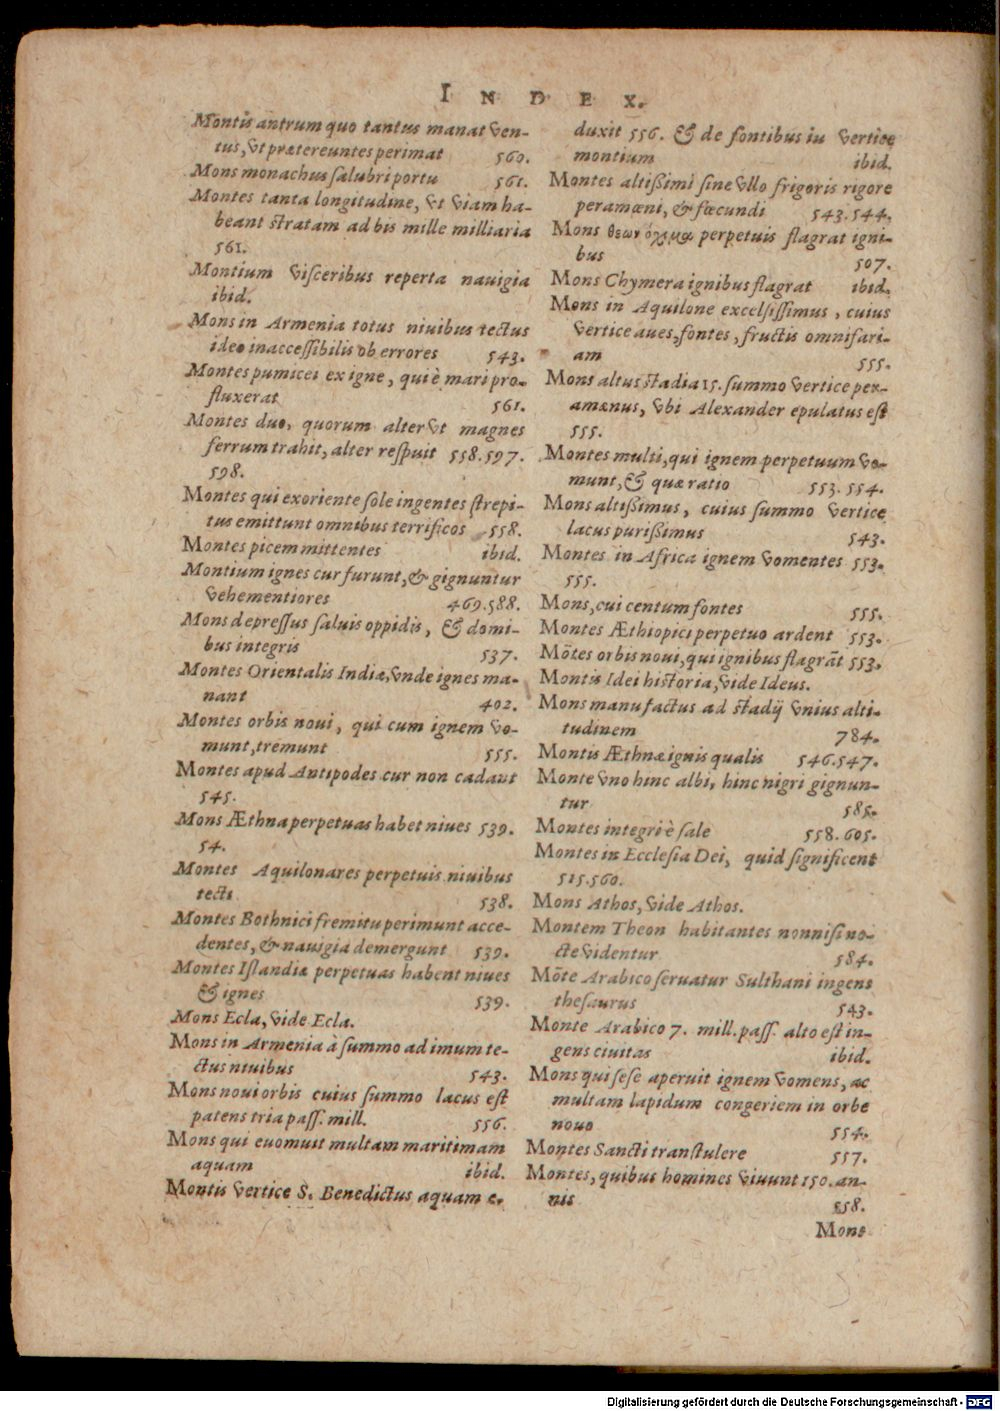 INDEX.
Montis antrum quo tantus manat ven-
tus, vt prætereuntes perimat 560.
Mons monachus salubri portu 561.
Montes tanta longitudine, vt viam ha-
beant stratam ad bis mille milliaria
561.
Montium visceribus reperta nauigia
ibid.
Mons in Armenia totus niuibus tectus
ideo inaccessibilis ob errores 543.
Montes pumicei ex igne, qui è mari pro-
fluxerat 561.
Montes duo, quorum alter vt magnes
ferrum trahit, alter respuit 558.597.
598.
Montes qui exoriente sole ingentes strepi-
tus emittunt omnibus terrificos 558.
Montes picem mittentes ibid.
Montium ignes cur furunt, & gignuntur
vehementiores 469.588.
Mons depressus saluis oppidis, & domi-
bus integris 537.
Montes Orientalis Indiæ, vnde ignes ma-
nant 402.
Montes orbis noui, qui cum ignem vo-
munt, tremunt 555.
Montes apud Antipodes cur non cadant
545.
Mons Æthna perpetuas habet niues 539.
54.
Montes Aquilonares perpetuis niuibus
tecti 538.
Montes Bothnici fremitu perimunt acce-
dentes, & nauigia demergunt 539.
Montes Islandiæ perpetuas habent niues
& ignes 539.
Mons Ecla, vide Ecla.
Mons in Armenia à summo ad imum te-
ctus niuibus 543.
Mons noui orbis cuius summo lacus est
patens tria pass. mill. 556.
Mons qui euomuit multam maritimam
aquam ibid.
Montis vertice S. Benedictus aquam e-
duxit 556. & de fontibus in vertice
montium ibid.
Montes altißimi sine vllo frigoris rigore
peramœni, & fœcundi 543.544.
Mons θεων όχημα perpetuis flagrat igni-
bus 507.
Mons Chymera ignibus flagrat ibid.
Mons in Aquilone excelsissimus, cuius
vertice aues, fontes, fructis omnifari-
am 555.
Mons altus stadia 15. summo vertice per-
amænus, vbi Alexander epulatus est
555.
Montes multi, qui ignem perpetuum vo-
munt, & quæ ratio 553.554.
Mons altißimus, cuius summo vertice
lacus purißimus 543.
Montes in Africa ignem vomentes 553.
555.
Mons, cui centum fontes 555.
Montes Æthiopici perpetuo ardent 553.
Mōtes orbis noui, qui ignibus flagrāt 553.
Montis Idei historia, vide Ideus.
Mons manufactus ad stadij vnius alti-
tudinem 784.
Montis Æthnæ ignis qualis 546.547.
Monte vno hinc albi, hinc nigri gignun-
tur 585.
Montes integri è sale 558.605.
Montes in Ecclesia Dei, quid significent
515.560.
Mons Athos, vide Athos.
Montem Theon habitantes non nisi no-
cte videntur 584.
Mōte Arabico seruatur Sulthani ingens
thesaurus 543.
Monte Arabico 7. mill. pass. alto est in-
gens ciuitas ibid.
Mons qui sese aperuit ignem vomens, ac
multam lapidum congeriem in orbe
nouo 554.
Montes Sancti transtulere 557.
Montes, quibus homines viuunt 150. an-
nis 558.
Mons
Digitalisierung gefördert durch die Deutsche Forschungsgemeinschaft - DFG